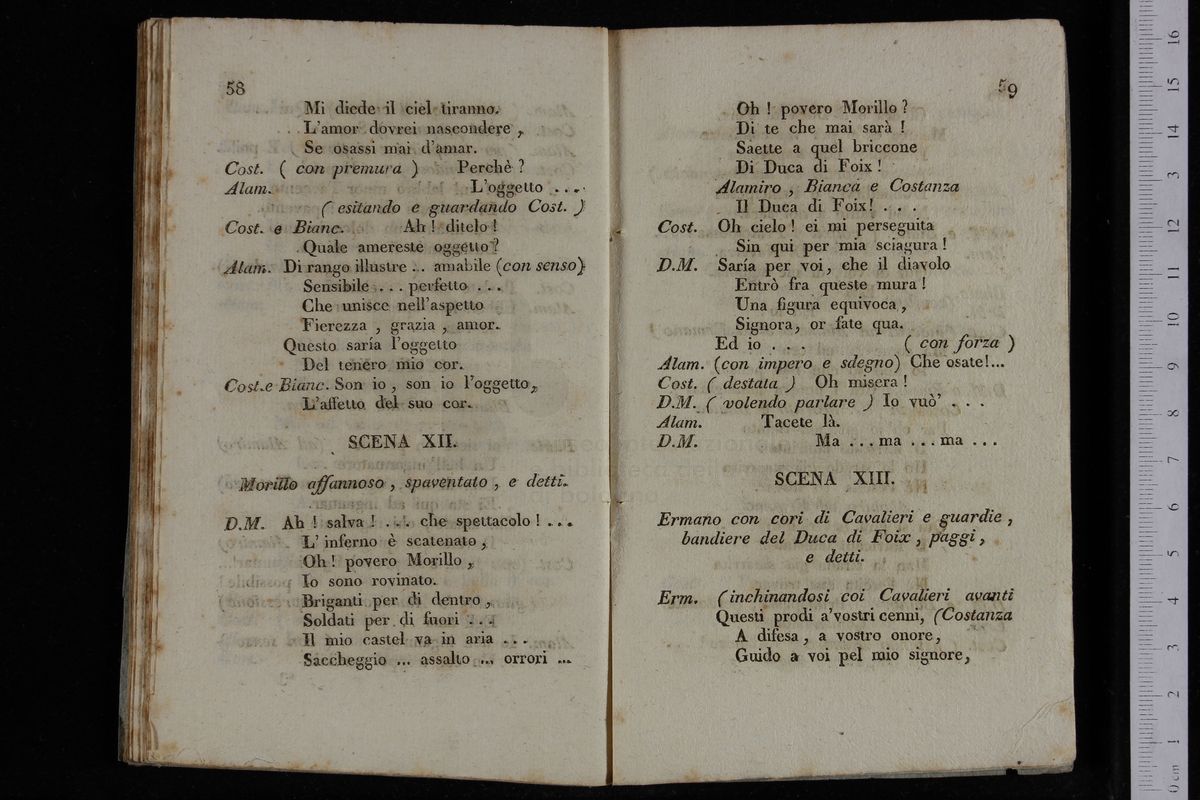 58
Mi diede il ciel tiranno.
L'amor dovrei nascondere,
Se osassi mai d'amar.
Cost. ( con premura ) Perchè ?
Alam. L'oggetto ....
( esitando e guardando Cost. )
Cost. e Bianc. Ah ! ditelo !
Quale amereste oggetto ?
Alam. Di rango illustre .. amabile (con senso)
Sensibile . . . perfetto . . .
Che unisce nell'aspetto
Fierezza , grazia , amor.
Questo saría l'oggetto
Del tenero mio cor.
Cost. e Bianc. Son io , son io l'oggetto,
L'affetto del suo cor.
SCENA XII.
Morillo affannoso , spaventato , e detti.
D.M. Ah ! salva ! . . . che spettacolo ! . . .
L' inferno è scatenato ,
Oh ! povero Morillo ,
Io sono rovinato.
Briganti per di dentro ,
Soldati per di fuori . . .
Il mio castel va in aria . . .
Saccheggio ... assalto ... orrori ...
59
Oh ! povero Morillo ?
Di te che mai sarà !
Saette a quel briccone
Di Duca di Foix !
Alamiro , Bianca e Costanza
Il Duca di Foix! . . .
Cost. Oh cielo ! ei mi perseguita
Sin qui per mia sciagura !
D.M. Saría per voi, che il diavolo
Entrò fra queste mura !
Una figura equivoca ,
Signora, or fate qua.
Ed io . . . ( con forza )
Alam. (con impero e sdegno) Che osate!...
Cost. ( destata ) Oh misera !
D.M. ( volendo parlare ) Io vuò' . . .
Alam. Tacete là.
D.M. Ma . . . ma . . . ma . . .
SCENA XIII.
Ermano con cori di Cavalieri e guardie ,
bandiere del Duca di Foix , paggi ,
e detti.
Erm. (inchinandosi coi Cavalieri avanti
Questi prodi a'vostri cenni, (Costanza
A difesa , a vostro onore,
Guido a voi pel mio signore,
0 cm 1 2 3 4 5 6 7 8 9 10 11 12 13 14 15 16